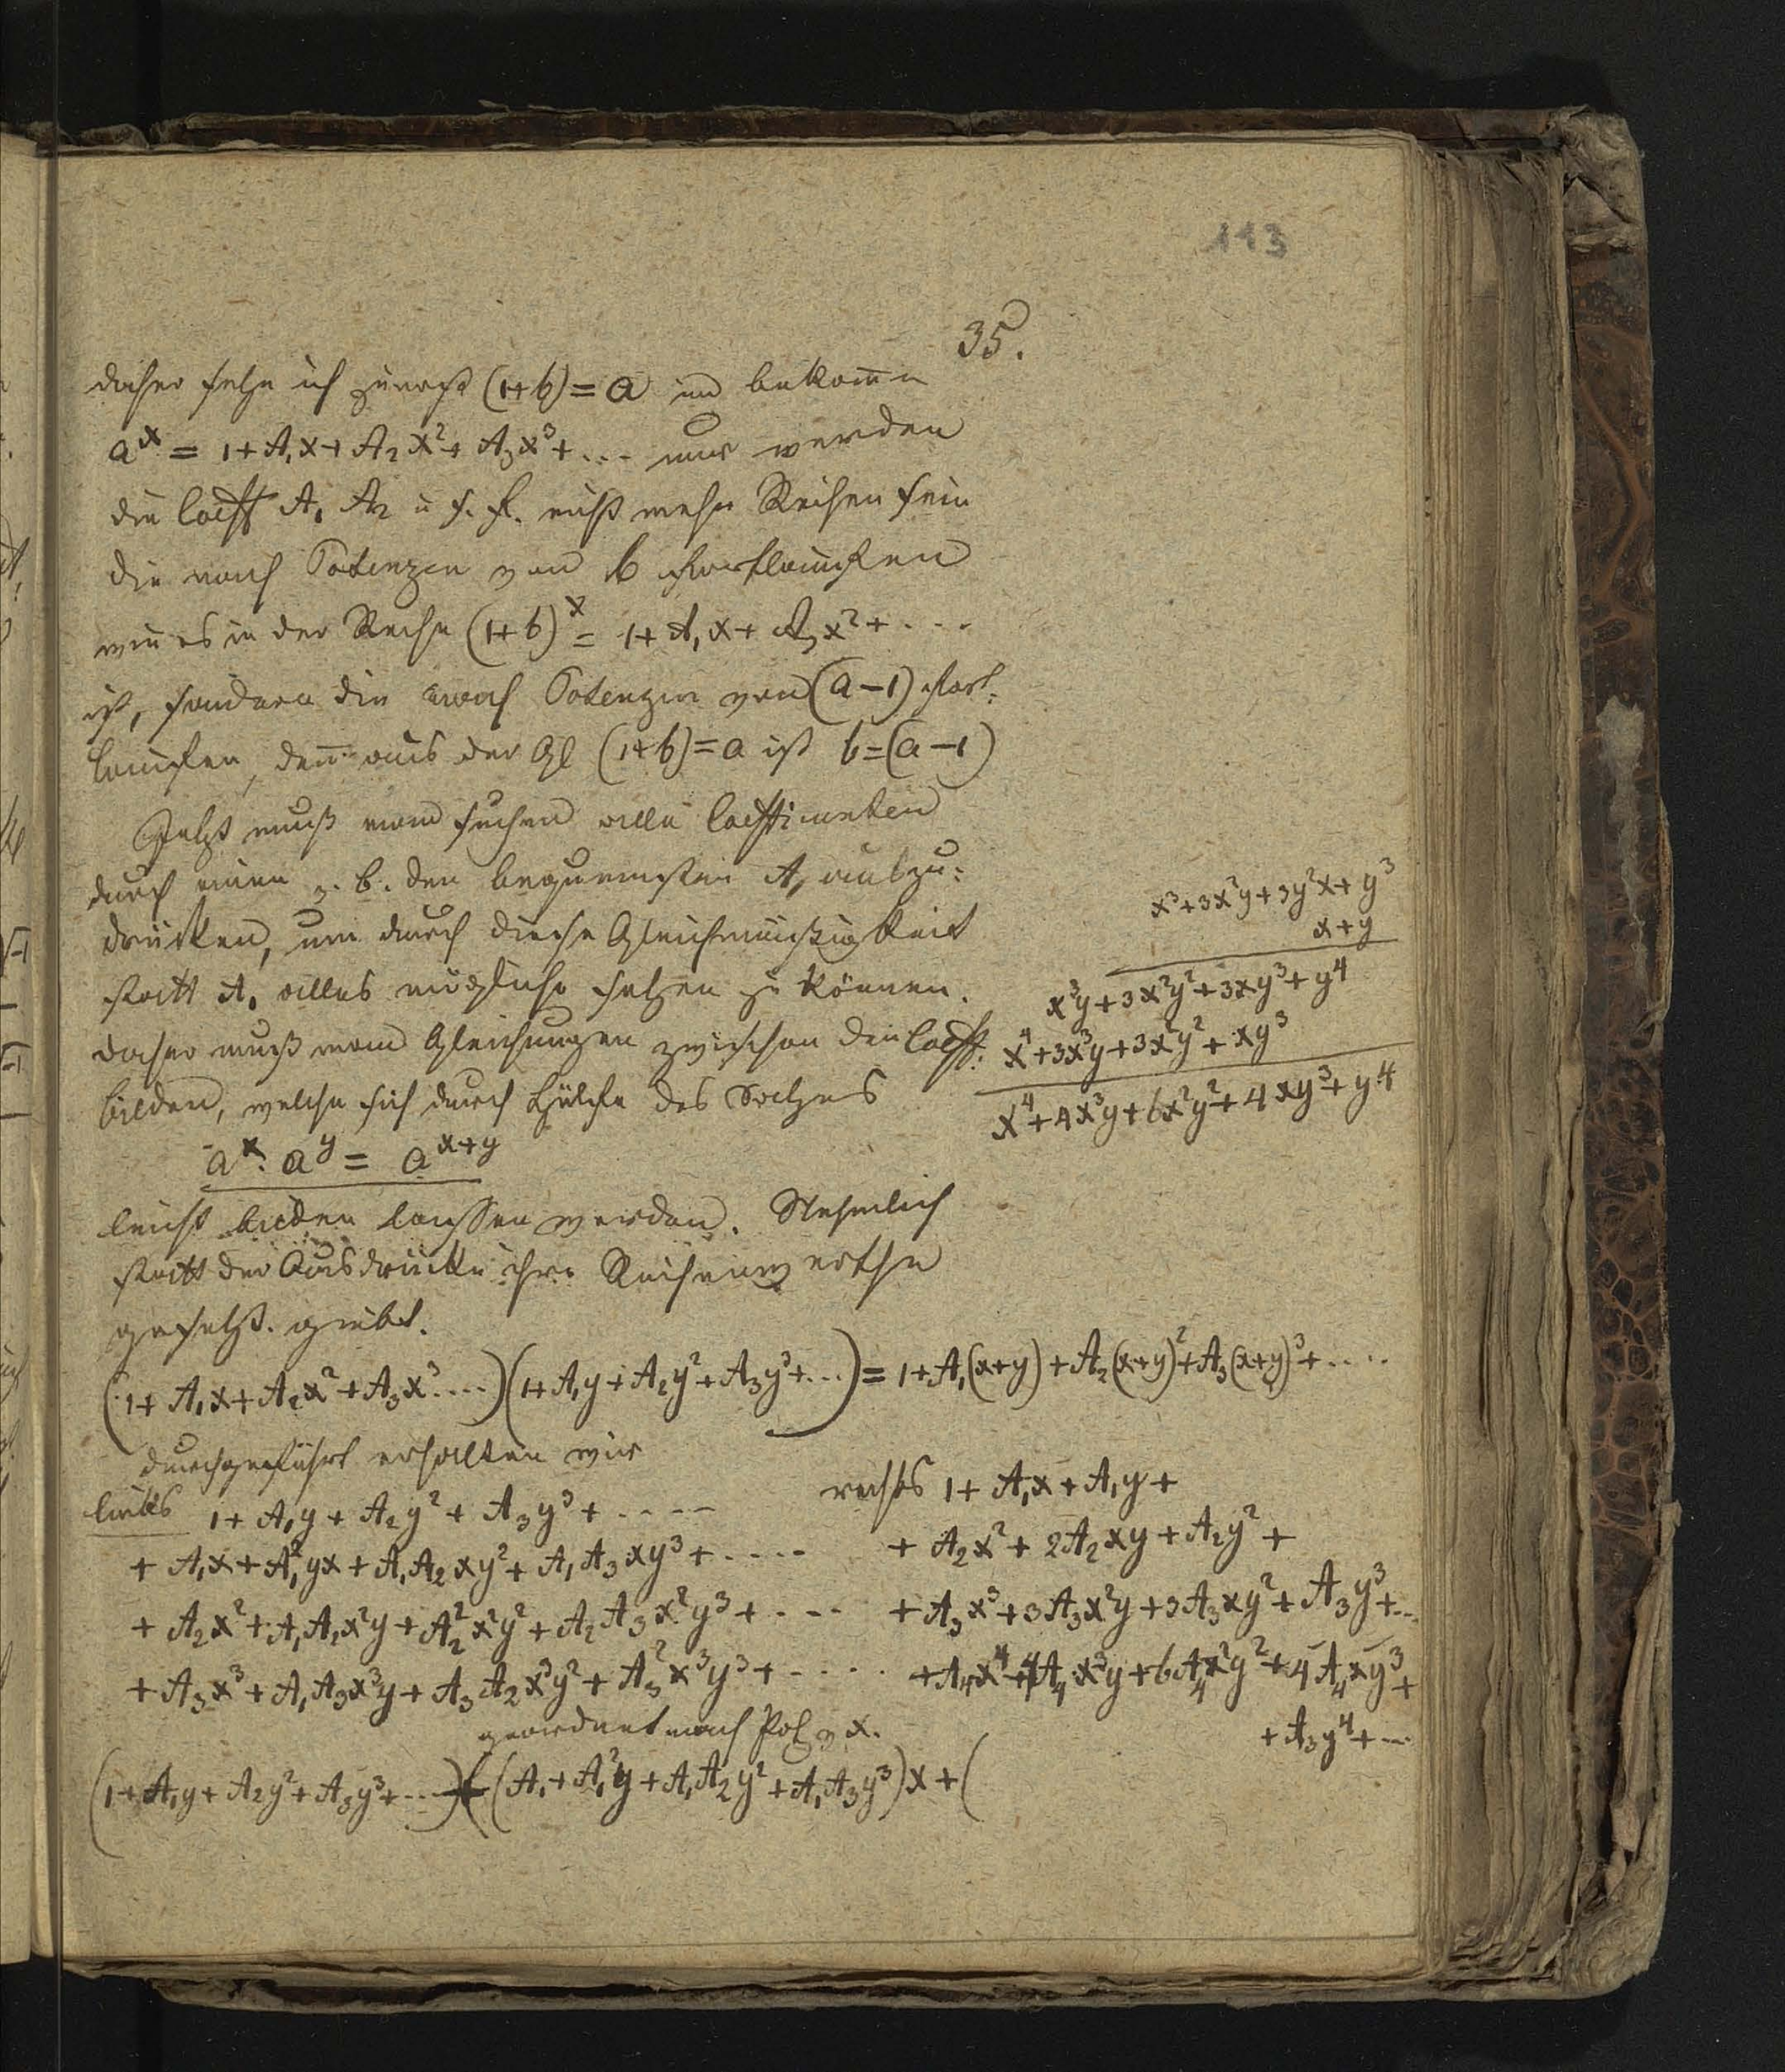 113
35.
daher setze ich zuerst (1+b)=a und bekomme
aˣ = 1+A₁x+A₂x²+A₃x³+... nur werden
die Coeff A₁ A₂ u s. f. nicht mehr Reihen sein
die nach Potenzen von b fortlaufen
wie es in der Reihe (1+b)ˣ = 1+A₁x+A₂x²+...
ist, sondern die nach Potenzen von (a−1) fort:
laufen, deñ aus der Gl (1+b)=a ist b=(a−1)
Jetzt muß man suchen alle Coefficienten
durch einen z. b. den bequemsten A₁ auszu:
drücken, um durch diese Gleichmäßigkeit
statt A₁ alles mögliche setzen zu können.
daher muß man Gleichungen zwischen den Coeff.
bilden, welche sich durch Hülfe des Satzes
aˣ. aʸ = aˣ⁺ʸ
leicht bilden lassen werden. Nehmlich
statt der Ausdrücke ihre Reihenwerthe
gesetzt. giebt.
x³+3x²y+3y²x+y³
x+y
x³y+3x²y²+3xy³+y⁴
x⁴+3x³y+3x²y²+xy³
x⁴+4x³y+6x²y²+4xy³+y⁴
(1+A₁x+A₂x²+A₃x³....)(1+A₁y+A₂y²+A₃y³+...)=1+A₁(x+y)+A₂(x+y)²+A₃(x+y)³+....
durchgeführt erhalten wir
links 1+A₁y+A₂y²+A₃y³+....
+A₁x+A₁²yx+A₁A₂xy²+A₁A₃xy³+.....
+A₂x²+A₁A₂x²y+A₂²x²y²+A₂A₃x²y³+....
+A₃x³+A₁A₃x³y+A₃A₂x³y²+A₃²x³y³+.....
rechts 1+A₁x+A₁y+
+A₂x²+2A₂xy+A₂y²+
+A₃x³+3A₃x²y+3A₃xy²+A₃y³+...
+A₄x⁴+4A₄x³y+6A₄x²y²+4A₄xy³+
+A₃y⁴+...
geordnet nach Pot v x.
(1+A₁y+A₂y²+A₃y³+....)+(A₁+A₁²y+A₁A₂y²+A₁A₃y³)x+(